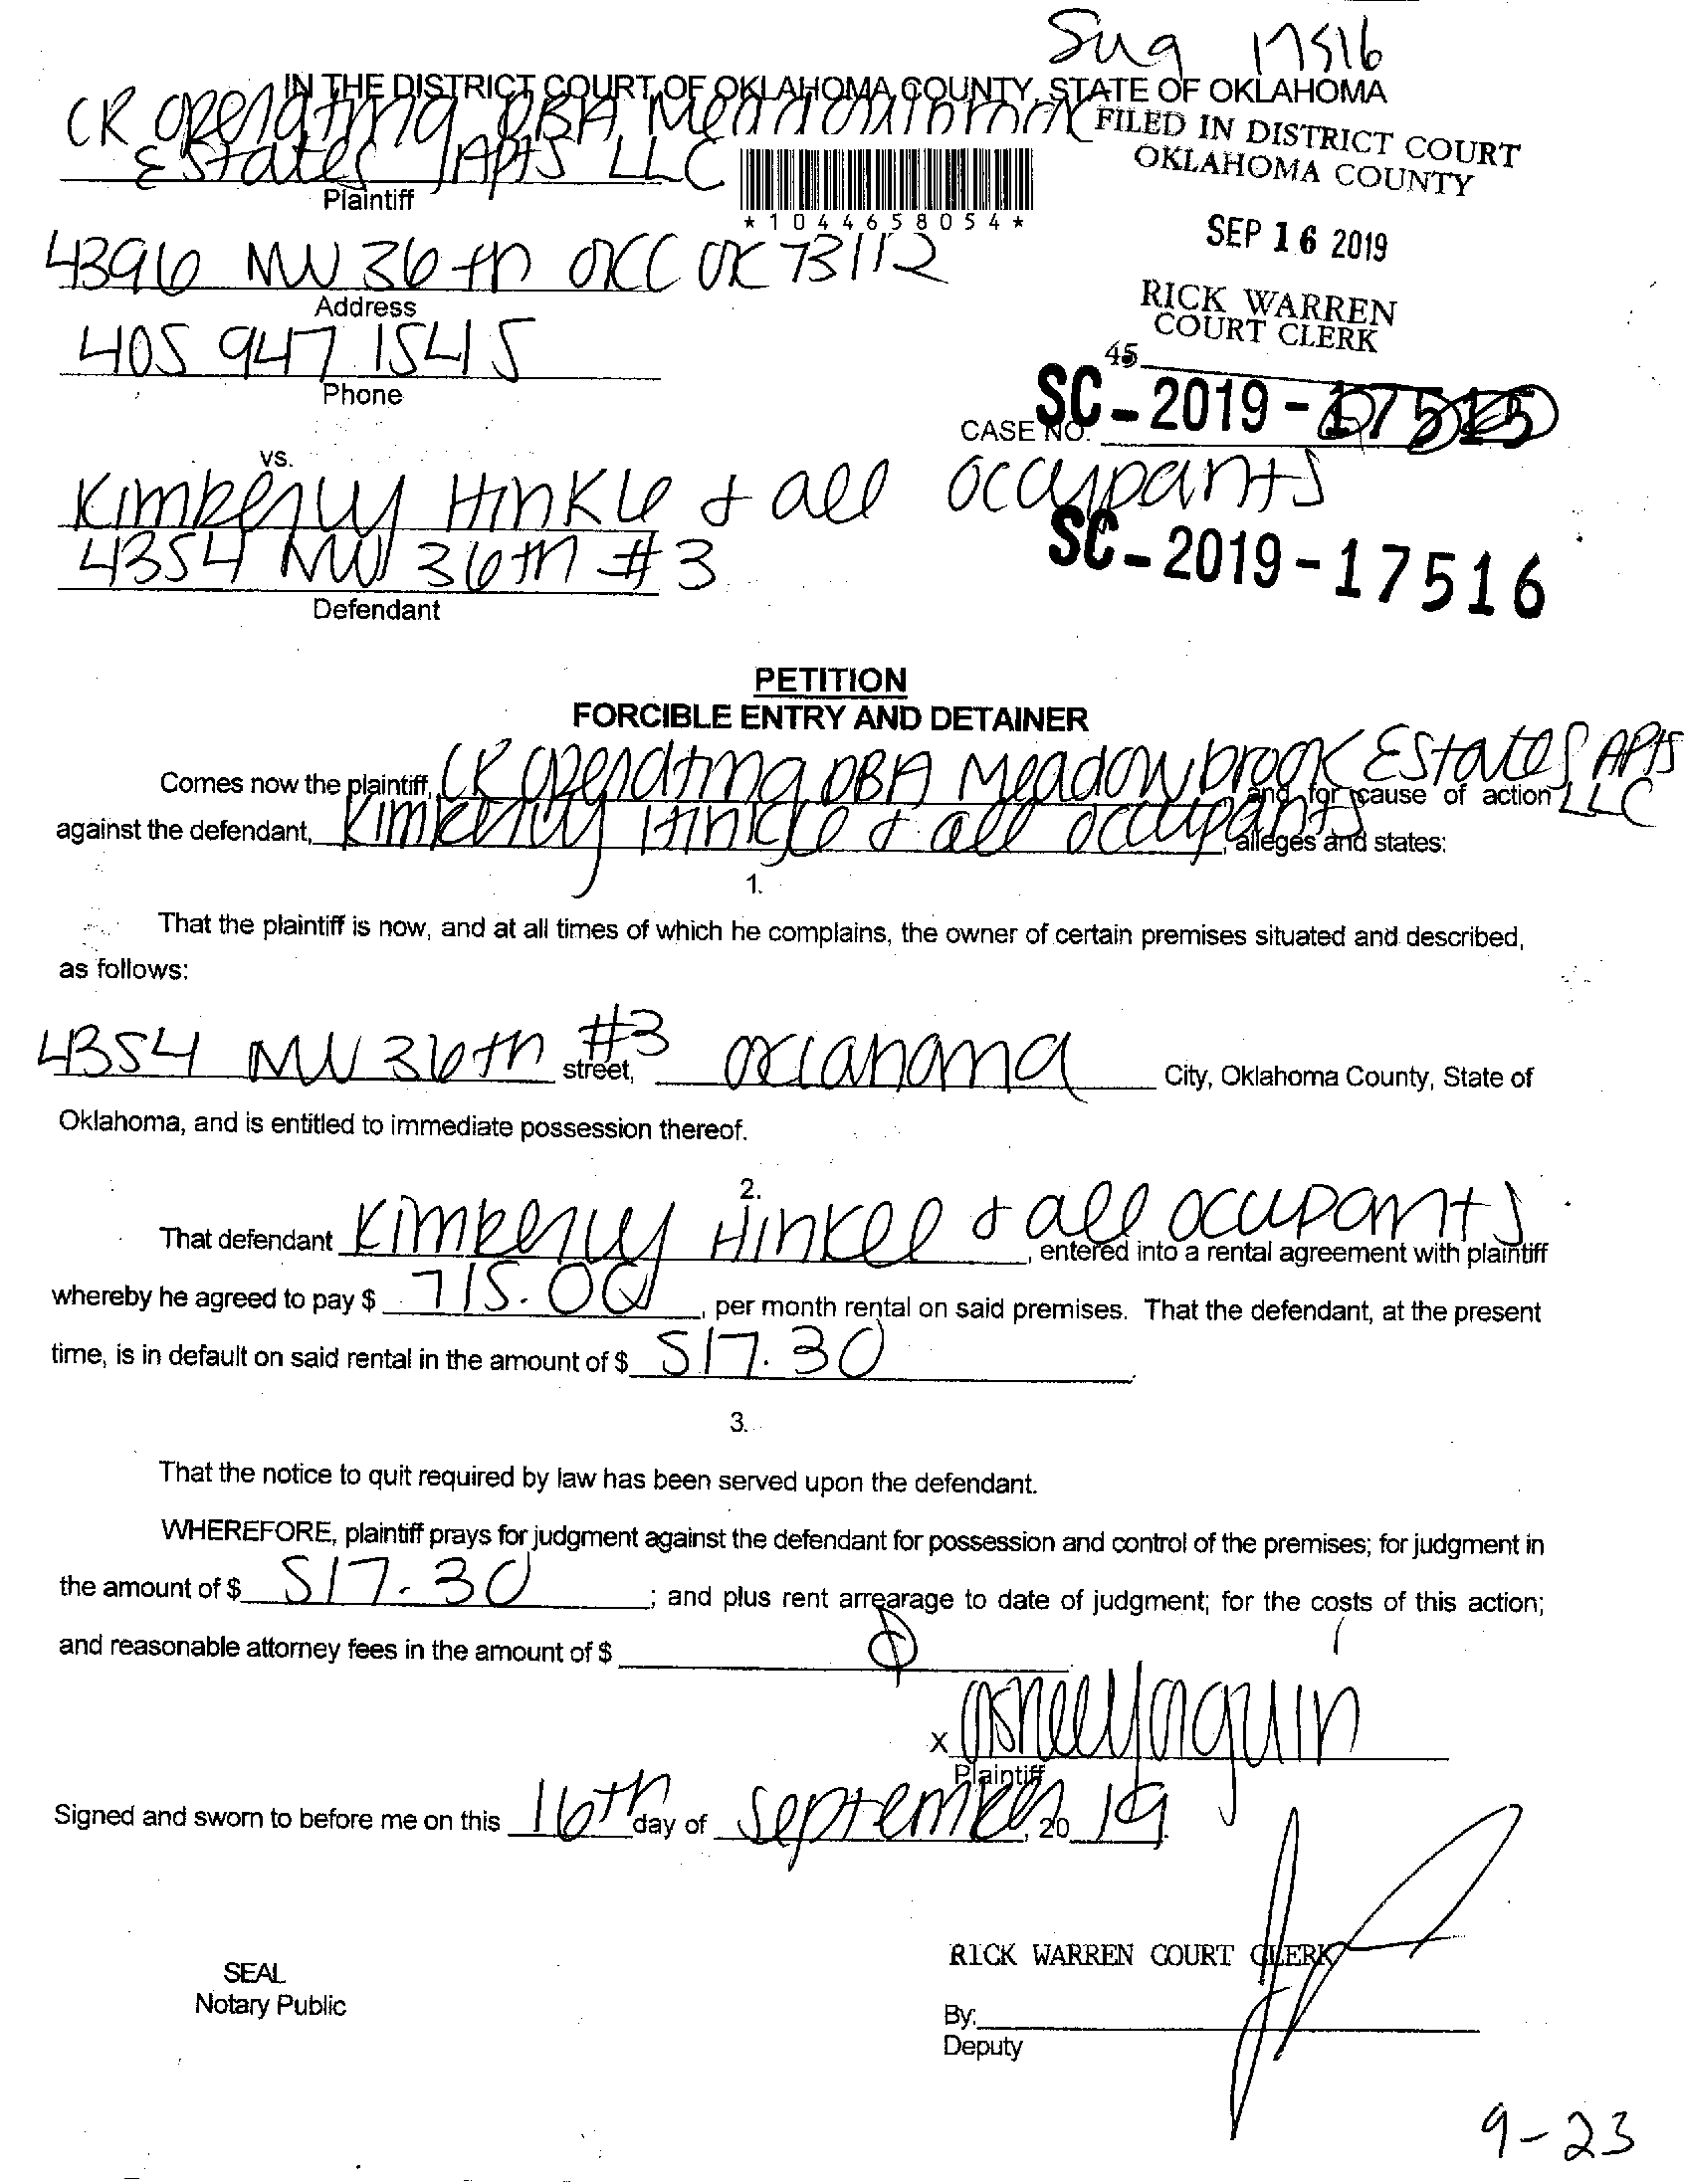 Sug 17516
IN THE DISTRICT COURT OF OKLAHOMA COUNTY, STATE OF OKLAHOMA
CR Operating DBA Meadowbrook
Estates Apts LLC
Plaintiff
FILED IN DISTRICT COURT
OKLAHOMA COUNTY
*1044658054*
SEP 16 2019
4396 NW 36th OKC OK 73112
Address
RICK WARREN
COURT CLERK
405 947 1545
Phone
45
CASE NO. SC-2019-17515
vs.
Kimberly Hinkle & all occupants
4354 NW 36th #3
Defendant
SC-2019-17516
PETITION
FORCIBLE ENTRY AND DETAINER
Comes now the plaintiff, CR Operating DBA Meadowbrook Estates Apts LLC and for cause of action
against the defendant, Kimberly Hinkle & all occupants, alleges and states:
1.
That the plaintiff is now, and at all times of which he complains, the owner of certain premises situated and described,
as follows:
4354 NW 36th #3 street, Oklahoma City, Oklahoma County, State of
Oklahoma, and is entitled to immediate possession thereof.
2.
That defendant Kimberly Hinkel & all occupants, entered into a rental agreement with plaintiff
whereby he agreed to pay $ 715.00, per month rental on said premises. That the defendant, at the present
time, is in default on said rental in the amount of $ 517.30.
3.
That the notice to quit required by law has been served upon the defendant.
WHEREFORE, plaintiff prays for judgment against the defendant for possession and control of the premises; for judgment in
the amount of $ 517.30; and plus rent arrearage to date of judgment; for the costs of this action;
and reasonable attorney fees in the amount of $ 0
X
Plaintiff
Signed and sworn to before me on this 16th day of September, 20 19.
RICK WARREN COURT CLERK
SEAL
Notary Public
By:
Deputy
9-23